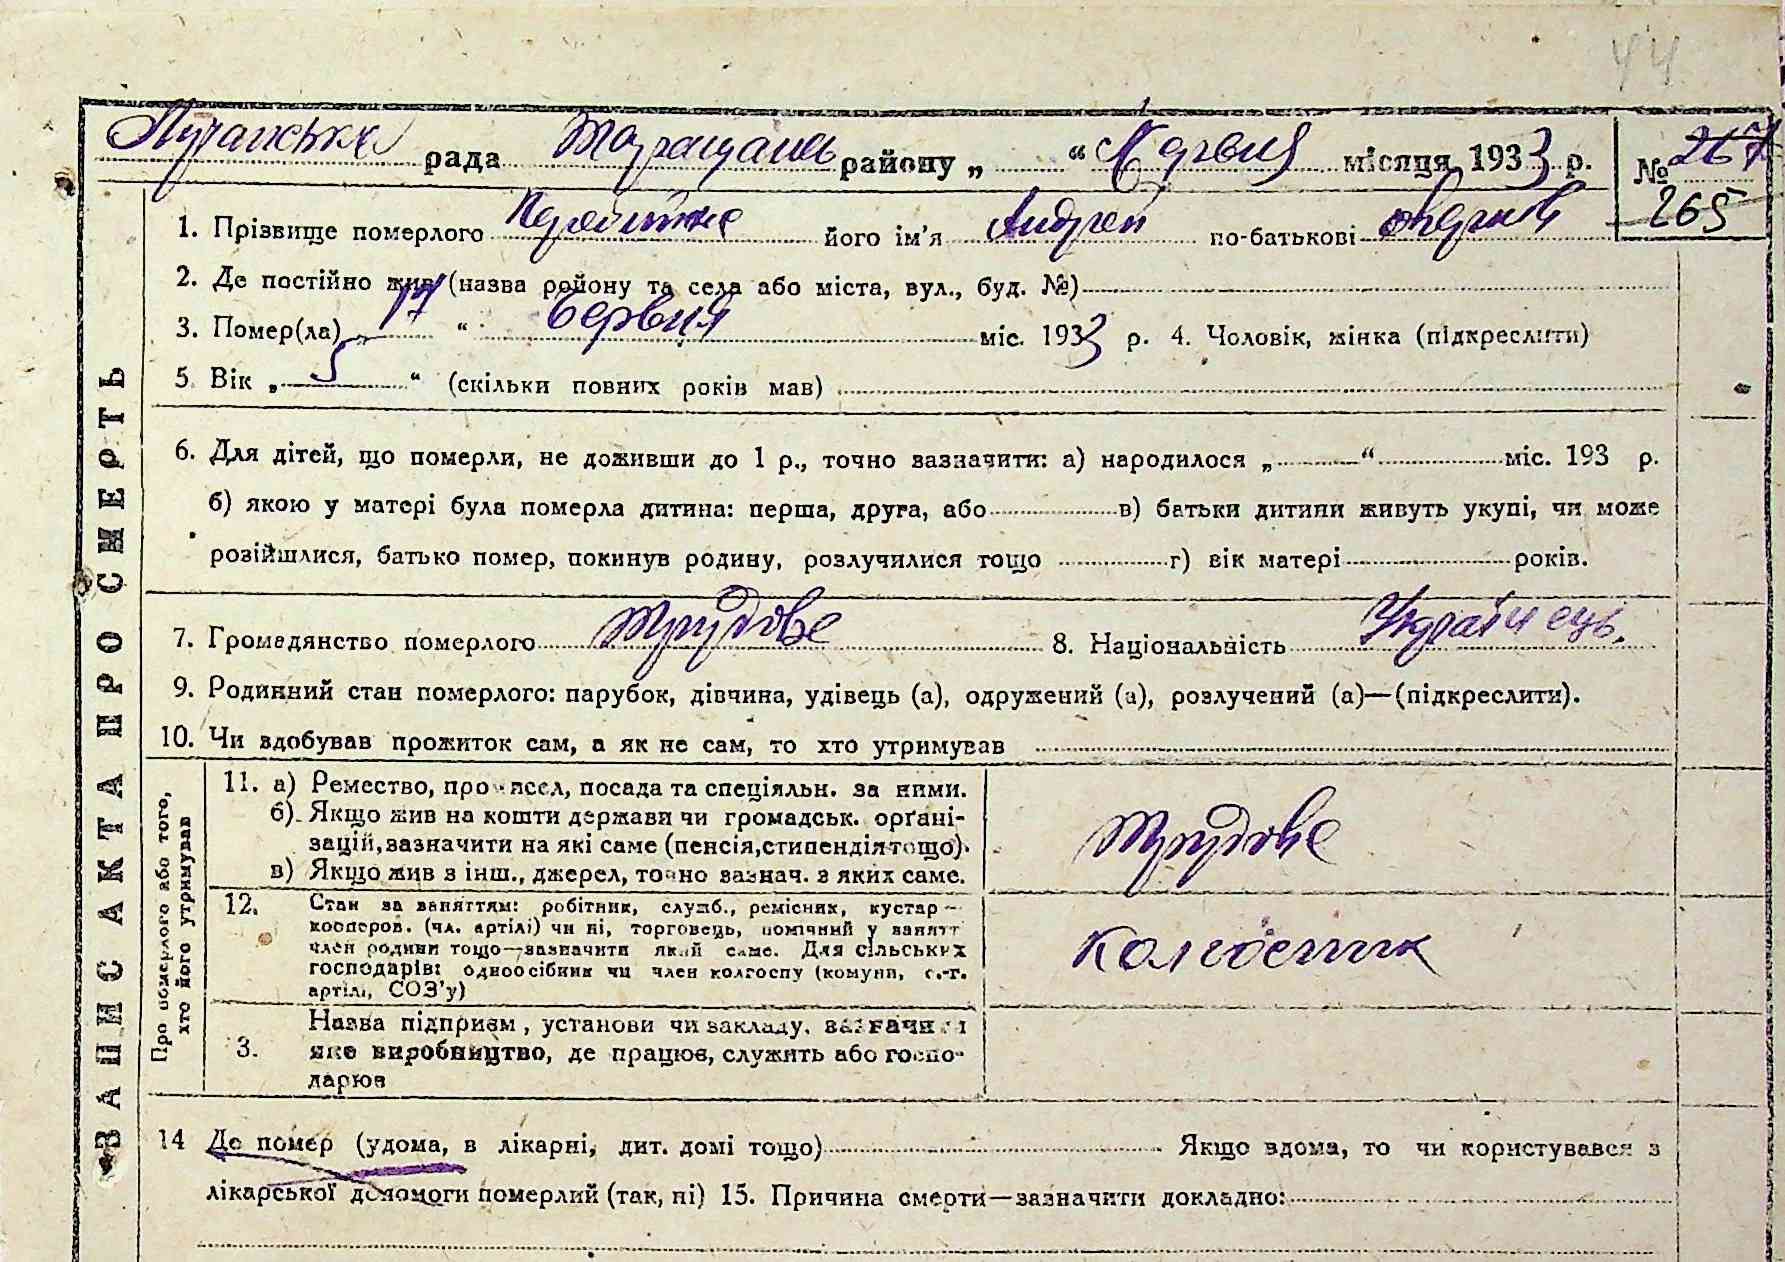 44
Лучанська рада Таращансь району „ “ Червня місяця 1933 р. № 267
265
1. Прізвище померлого його ім'я Андрей по-батькові
2. Де постійно жив (назва району та села або міста, вул., буд. №)
3. Помер(ла) „ 17 “ Червня міс. 1933 р. 4. Чоловік, жінка (підкреслити)
5. Вік „ 5 “ (скільки повних років мав)
6. Для дітей, що померли, не доживши до 1 р., точно зазначити: а) народилося „ “ міс. 193 р.
б) якою у матері була померла дитина: перша, друга, або в) батьки дитини живуть укупі, чи може
розійшлися, батько помер, покинув родину, розлучилися тощо г) вік матері років.
7. Громадянство померлого Трудове 8. Національність Українець.
9. Родинний стан померлого: парубок, дівчина, удівець (а), одружений (а), розлучений (а)—(підкреслити).
10. Чи здобував прожиток сам, а як не сам, то хто утримував
11. а) Ремество, промисел, посада та спеціяльн. за ними.
б) Якщо жив на кошти держави чи громадськ. орґані-
зацій, зазначити на які саме (пенсія, стипендія тощо).
в) Якщо жив з інш., джерел, точно зазнач. з яких саме.
Трудове
12. Стан за заняттям: робітник, служб., ремісник, кустар—
кооперов. (чл. артілі) чи ні, торговець, помічний у занятт
член родини тощо—зазначити який саме. Для сільських
господарів: одноосібник чи член колгоспу (комуни, с.-г.
артілі, СОЗ'у)
колгосник
3. Назва підприєм, установи чи закладу, зазначити
яке виробництво, де працює, служить або госпо-
дарює
14 Де помер (удома, в лікарні, дит. домі тощо) Якщо вдома, то чи користувався з
лікарської допомоги померлий (так, ні) 15. Причина смерти—зазначити докладно:
ЗАПИС АКТА ПРО СМЕРТЬ
Про померлого або того,
хто його утримував